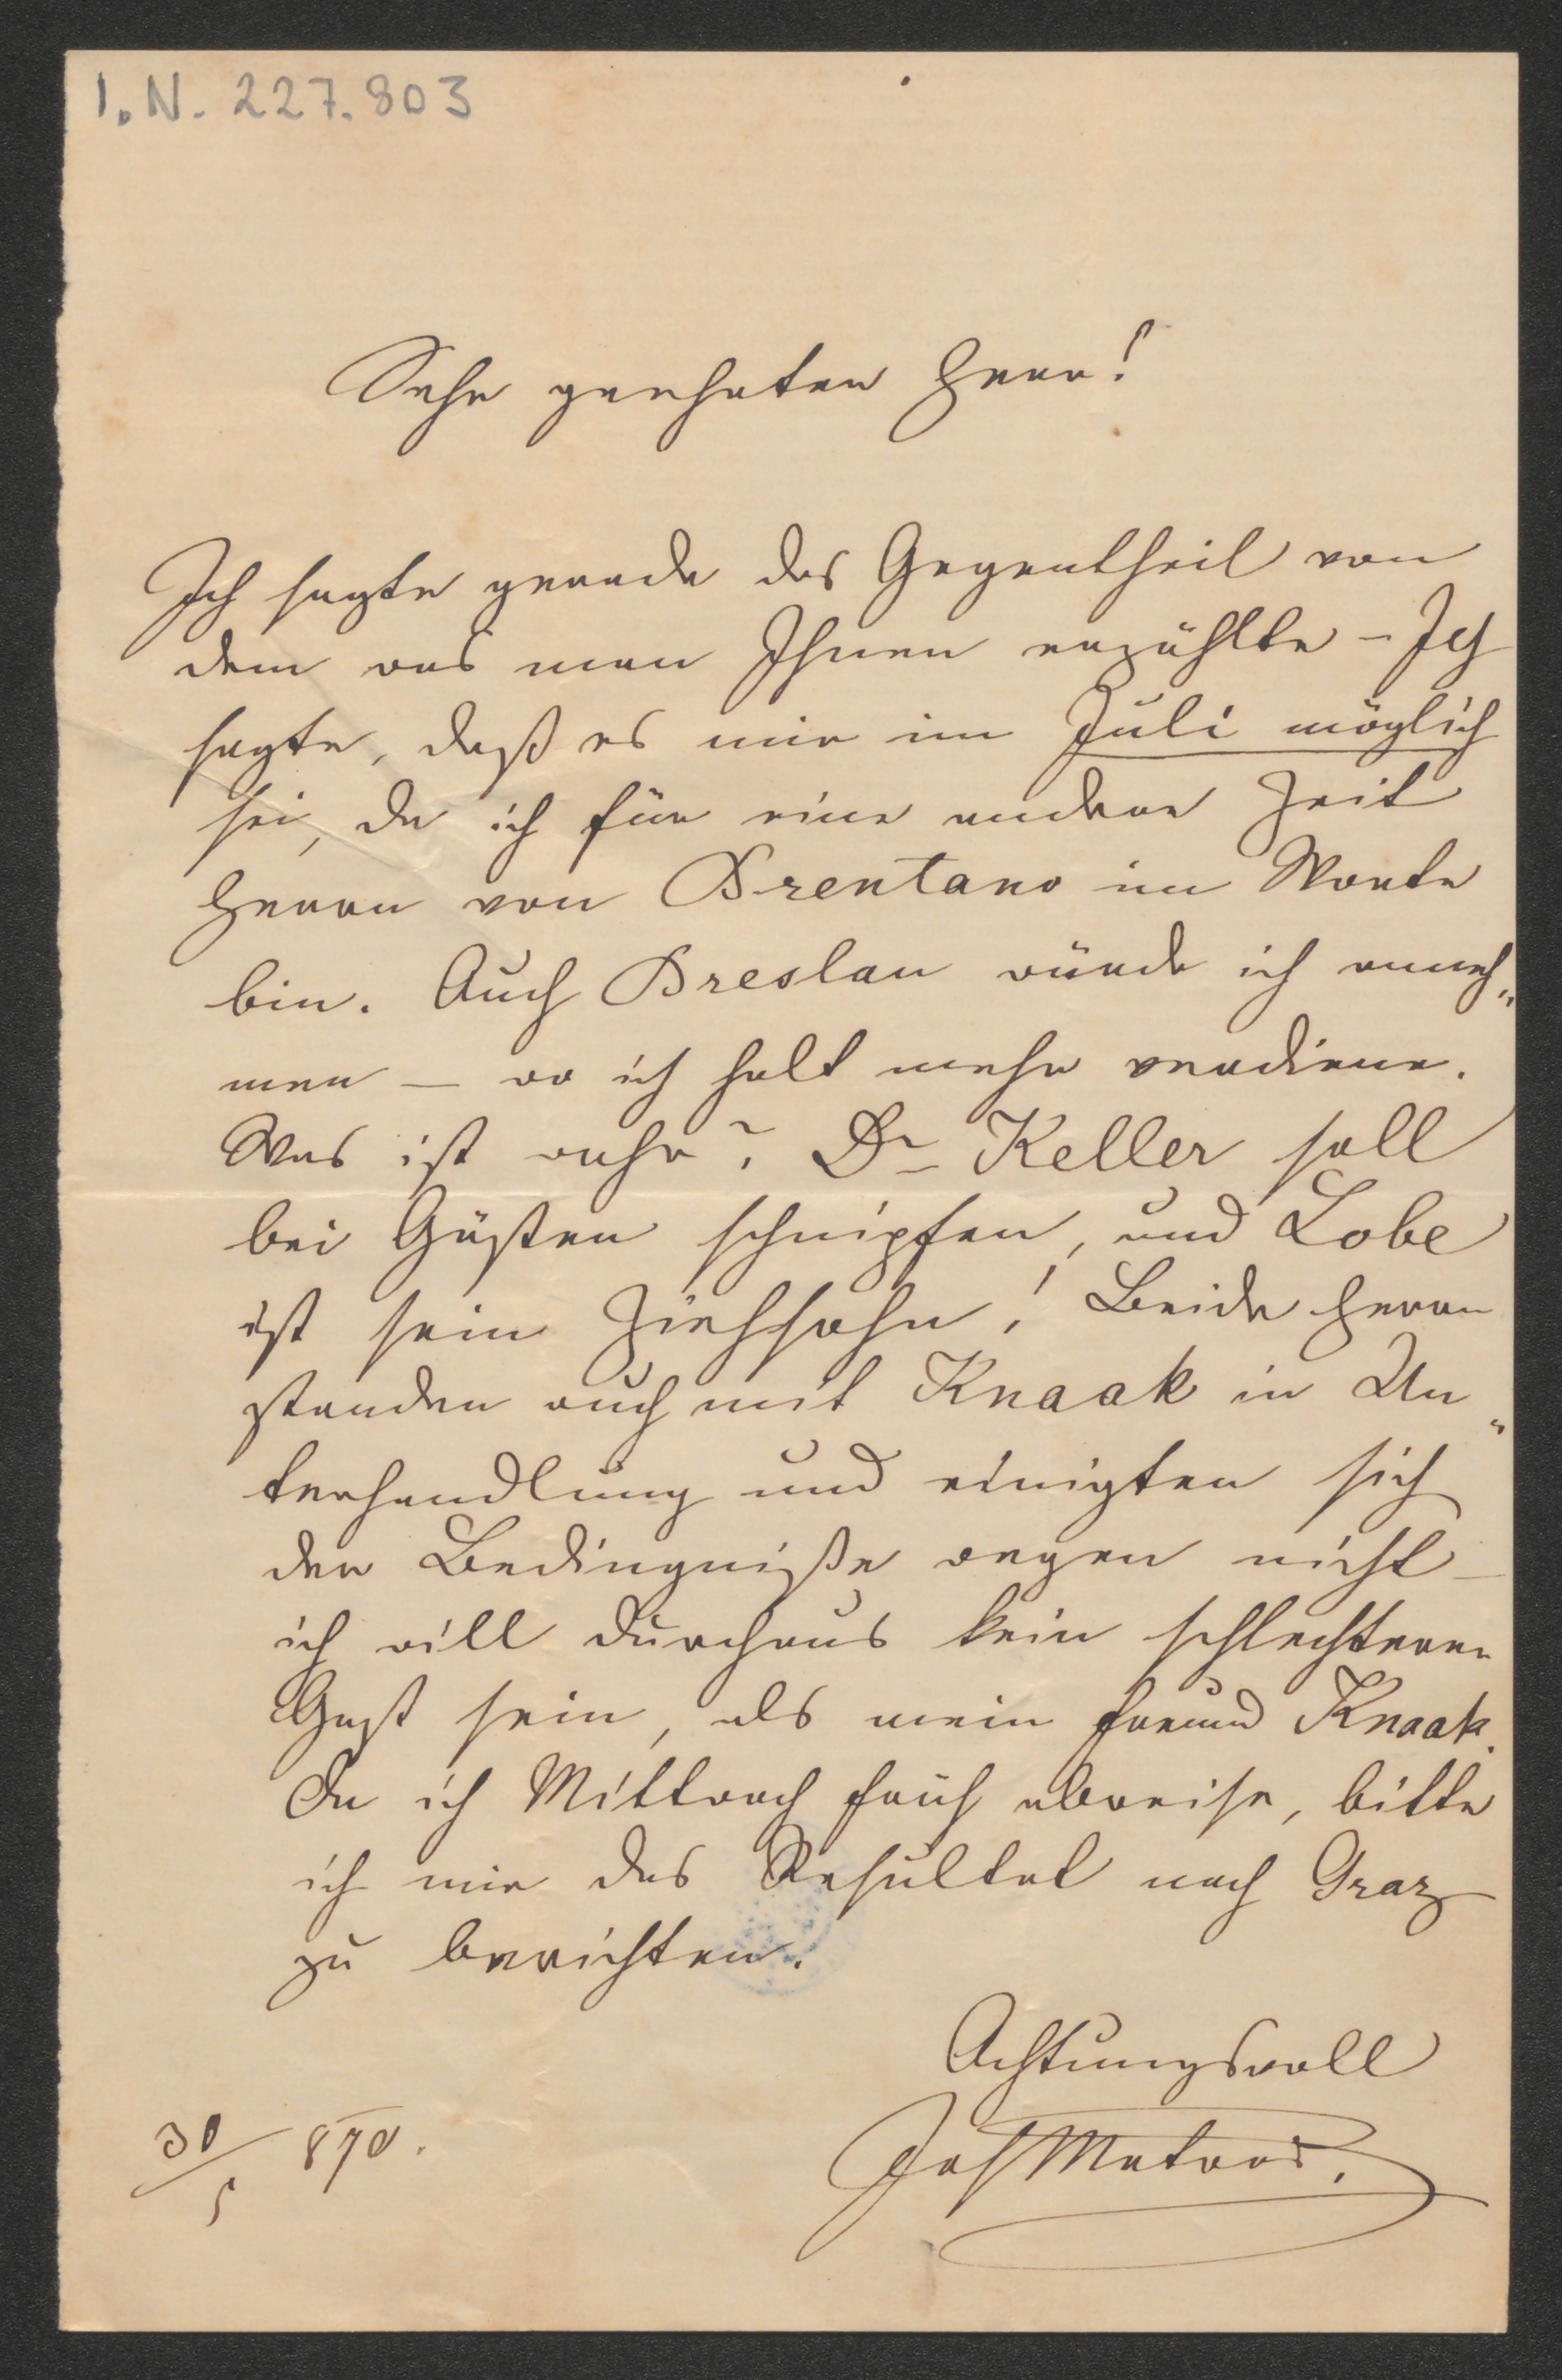 I. N. 227.803
Sehr geehrter Herr!
Ich sagte gerade das Gegentheil von
dem was man Ihnen erzählte – Ich
sagte, daß es mir im Juli möglich
sei, da ich für eine andere Zeit
Herrn von Brentano im Worte
bin. Auch Breslau würde ich anneh„
men – wo ich halt mehr verdiene.
Was ist wahr? Dr Keller soll
bei Gästen schnipfen, und Lobe
ist sein Ziehsohn! Beide Herren
standen auch mit Knaak in Un„
terhandlung und einigten sich
der Bedingniße wegen nicht –
ich will durchaus kein schlechterer
Gast sein, als mein Freund Knaak.
Da ich Mittwoch früh abreise, bitte
ich mir das Resultat nach Graz
zu berichten.
Achtungsvoll
Jos Matras.
30/5 870.